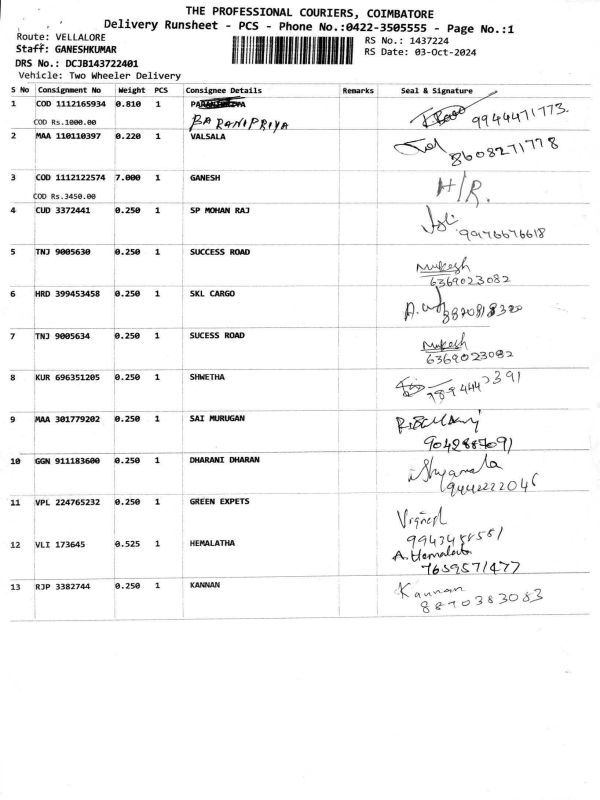 THE PROFESSIONAL COURIERS, COIMBATORE
Delivery Runsheet - PCS - Phone No.:0422-3505555 - Page No.:1
Route: VELLALORE
RS No.: 1437224
Staff: GANESHKUMAR
RS Date: 03-Oct-2024
DRS No.: DCJB143722401
Vehicle: Two Wheeler Delivery
S No Consignment No Weight PCS Consignee Details Remarks Seal & Signature
1 COD 1112165934 0.810 1 9944471773.
COD Rs.1000.00 BARANIPRIYA
2 MAA 110110397 0.220 1 VALSALA
8608271778
3 COD 1112122574 7.000 1 GANESH H/R.
COD Rs.3450.00
4 CUD 3372441 0.250 1 SP MOHAN RAJ
9976676618
5 TNJ 9005630 0.250 1 SUCCESS ROAD
Mukesh
6369023082
6 HRD 399453458 0.250 1 SKL CARGO
7 TNJ 9005634 0.250 1 SUCESS ROAD
Mukesh
6369023082
8 KUR 696351205 0.250 1 SHWETHA
9 MAA 301779202 0.250 1 SAI MURUGAN
9042887091
10 GGN 911183600 0.250 1 DHARANI DHARAN
Shyamala
9442222046
11 VPL 224765232 0.250 1 GREEN EXPETS
Vignesh
12 VLI 173645 0.525 1 HEMALATHA
A.Hemalatha
7659571477
13 RJP 3382744 0.250 1 KANNAN Kannan
8870383083